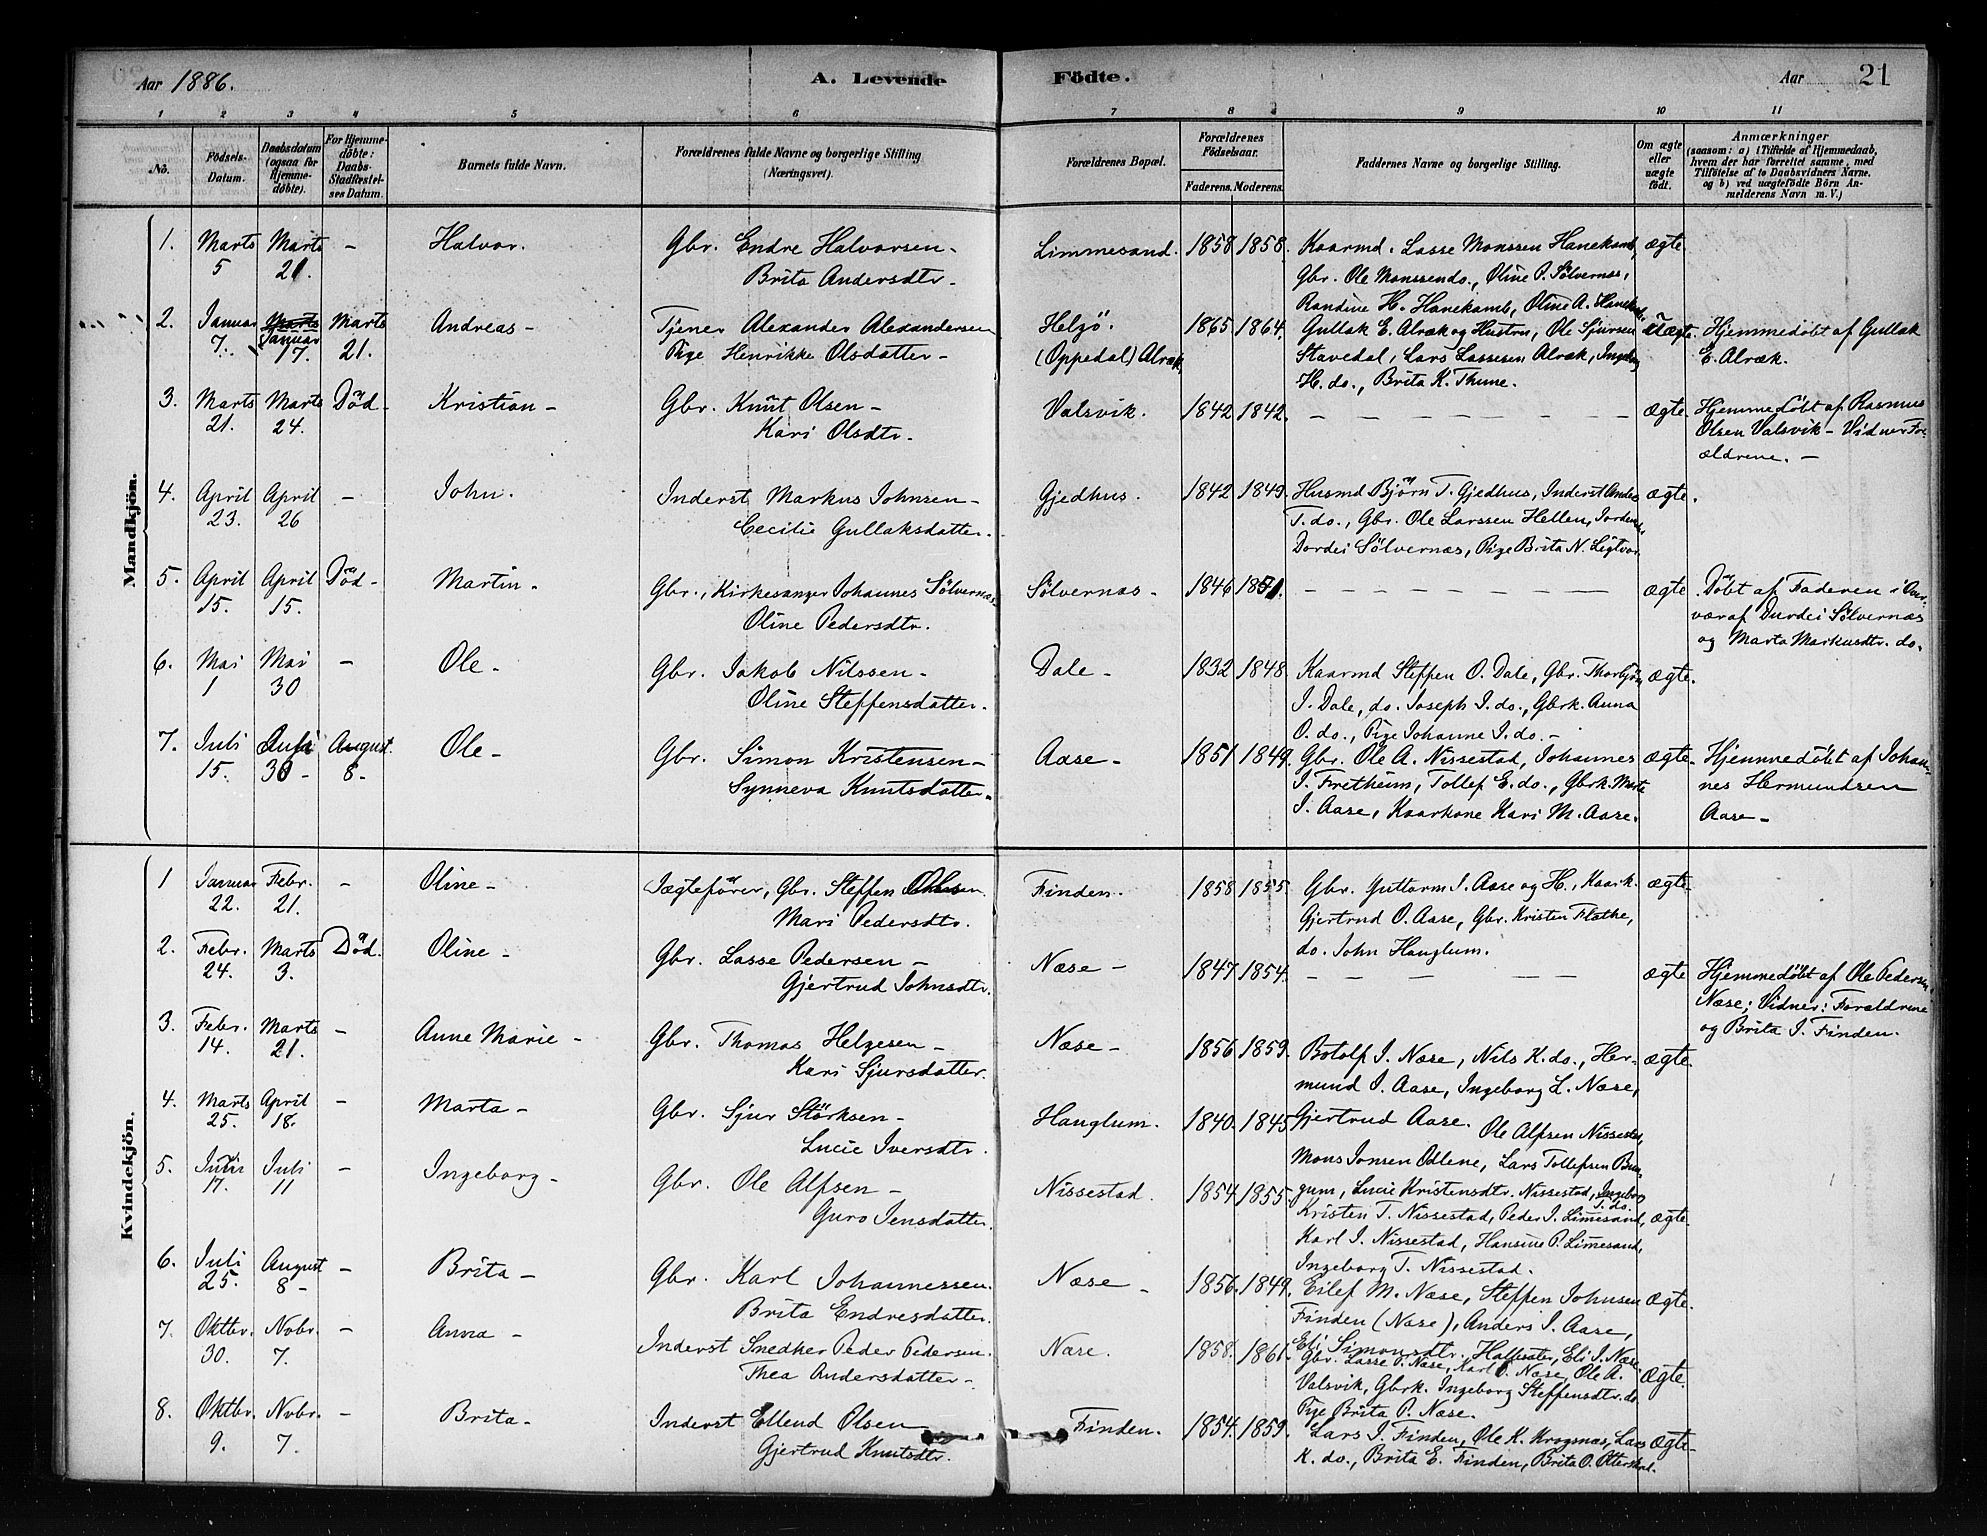 Aar 1886.
A. Levende Födte.
Aar
21
1 2 3 4 5 6 7 8 9 10 11
No.
Födsels-Datum.
Daabsdatum (ogsaa for Hjemmedöbte).
For Hjemmedöbte: Daabs-Stadfæstelses Datum.
Barnets fulde Navn.
Forældrenes fulde Navne og borgerlige Stilling (Næringsvei).
Forældrenes Bopæl.
Forældrenes Födselsaar.
Faderens. Moderens.
Faddernes Navne og borgerlige Stilling.
Om ægte eller uægte födt.
Anmærkninger (saasom: a) i Tilfælde af Hjemmedaab, hvem der har forrettet samme, med Tilföielse af to Daabsvidners Navne, og b) ved uægtefödte Börn Anmelderens Navn m. V.)
Mandkjön.
1. Marts 5 Marts 21. – Halvor. Gbr. Endre Halvorsen – Limmesand. 1858 1858. Kaarmd. Lasse Monssen Hanekamb, ægte
Brita Andersdtr. Gbr. Ole Monssen do., Oline P. Sølvernæs,
Randine H. Hanekamb, Oline A. Hanekamb.
2. Januar 7. Januar 17. Marts 21. Andreas – Tjener Alexander Alexandersen Helgö. 1865 1864. Gullak E. Alræk og Hustru, Ole Sjursen Uægte. Hjemmedöbt af Gullak
Pige Henrikke Olsdatter – (Oppedal) Alræk Stavedal, Lars Lassesen Alræk, Ingeborg E. Alræk.
H. do., Brita K. Thune.
3. Marts 21. Marts 24. Död – Kristian – Gbr. Knut Olsen – Valsvik. 1842 1842. – – – ægte. Hjemmedöbt af Rasmus
Kari Olsdtr. Olsen Valsvik – Vidner For-
ældrene. –
4. April 23. April 26 – John. Inderst Markus Johnsen – Gjedhus. 1842 1849. Husmd Björn T. Gjedhus, Inderst Andes ægte.
Cecilie Gullaksdatter. T. do., Gbr. Ole Larssen Hellen,
Dordei Sølvernæs, Pige Brita N. Ligtvor.
5. April 15. April 15. Död – Martin – Gbr., Kirkesanger Johannes Sölvernæs Sölvernæs – 1846 1851. – – – ægte. Döbt af Faderen i Over-
Oline Pedersdtr. vær af Durdei Sölvernæs
og Marta Markusdtr. do.
6. Mai 1 Mai 30 – Ole – Gbr. Jakob Nilssen – Dale – 1832 1848. Kaarmd Steffen O. Dale, Gbr. Thorbjörn ægte.
Oline Steffensdatter. I. Dale, do. Joseph I. do., Gbrk. Anna
O. do., Pige Johanne I. do. –
7. Juli 15. Juli 30 – August 8 – Ole – Gbr. Simon Kristensen – Aase – 1851 1849. Gbr. Ole A. Nissestad, Johannes ægte – Hjemmedöbt af Johan-
Synneva Knutsdatter. I. Fretheim, Tollef E. do., Gbrk. Marte nes Hermundsen
I. Aase, Kaarkone Kari M. Aase. Aase –
Kvindekjön.
1 Januar 22. Febr. 21. – Oline – Jægtefører, Gbr. Steffen Olsen. Finden. 1858 1855. Gbr. Guttorm I. Aase og H., Kaark. ægte
Mari Pedersdtr. Gjertrud O. Aase, Gbr. Kristen Flathe,
do. John Hauglum.
2. Febr. 24. Marts 3. Död. Oline – Gbr. Lasse Pedersen – Næse – 1847. 1854. – – – ægte Hjemmedöbt af Ole Pedersen
Gjertrud Johnsdtr. Næse; Vidner: Forældrene
og Brita I. Finden.
3. Febr. 14. Marts 21. – Anne Marie – Gbr. Thomas Helgesen – Næse – 1856. 1859. Botolf I. Næse, Nils K. do., Her- ægte.
Kari Sjursdatter. mund I. Aase, Ingeborg L. Næse,
4. Marts 25. April 18. – Marta – Gbr. Sjur Störksen – Hauglum. 1840. 1845 Gjertrud Aase. Ole Alfsen Nissestad,
Lucie Iversdtr. Mons Jonsen Odlene, Lars Tollefsen Bun-
5. Juni 17. Juli 11 – Ingeborg – Gbr. Ole Alfsen – Nissestad. 1854. 1855. gum, Lucie Kristensdtr. Nissestad, Ingeborg T. do.
Guro Jensdatter. Kristen T. Nissestad, Peder I. Limesand, ægte.
Karl I. Nissestad, Hansine P. Limesand,
Ingeborg T. Nissestad.
6. Juli 25. August 8 – – Brita – Gbr. Karl Johannessen. Næse – 1856. 1849. Eilef M. Næse, Steffen Johnsen ægte.
Brita Endresdatter. Finden (Næse), Anders I. Aase,
Eli Simonsdtr. Eli I. Næse.
7. Oktbr. 30. Novbr. 7. – Anna – Inderst Snedker Peder Pedersen. Næse. 1858. 1861. Gbr. Lasse P. Næse, Karl O. Næse, Ole A. ægte.
Thea Andersdatter – Valsvik, Gbrk. Ingeborg Steffensdtr. do.
Pige Brita P. Næse.
8. Oktbr. 9. Novbr. 7. – Brita – Inderst Ellend Olsen Finden. 1854. 1859. Lars I. Finden, Ole K. Krogsnæs, Lars ægte –
Gjertrud Knutsdtr. K. do., Brita E. Finden, Brita O.